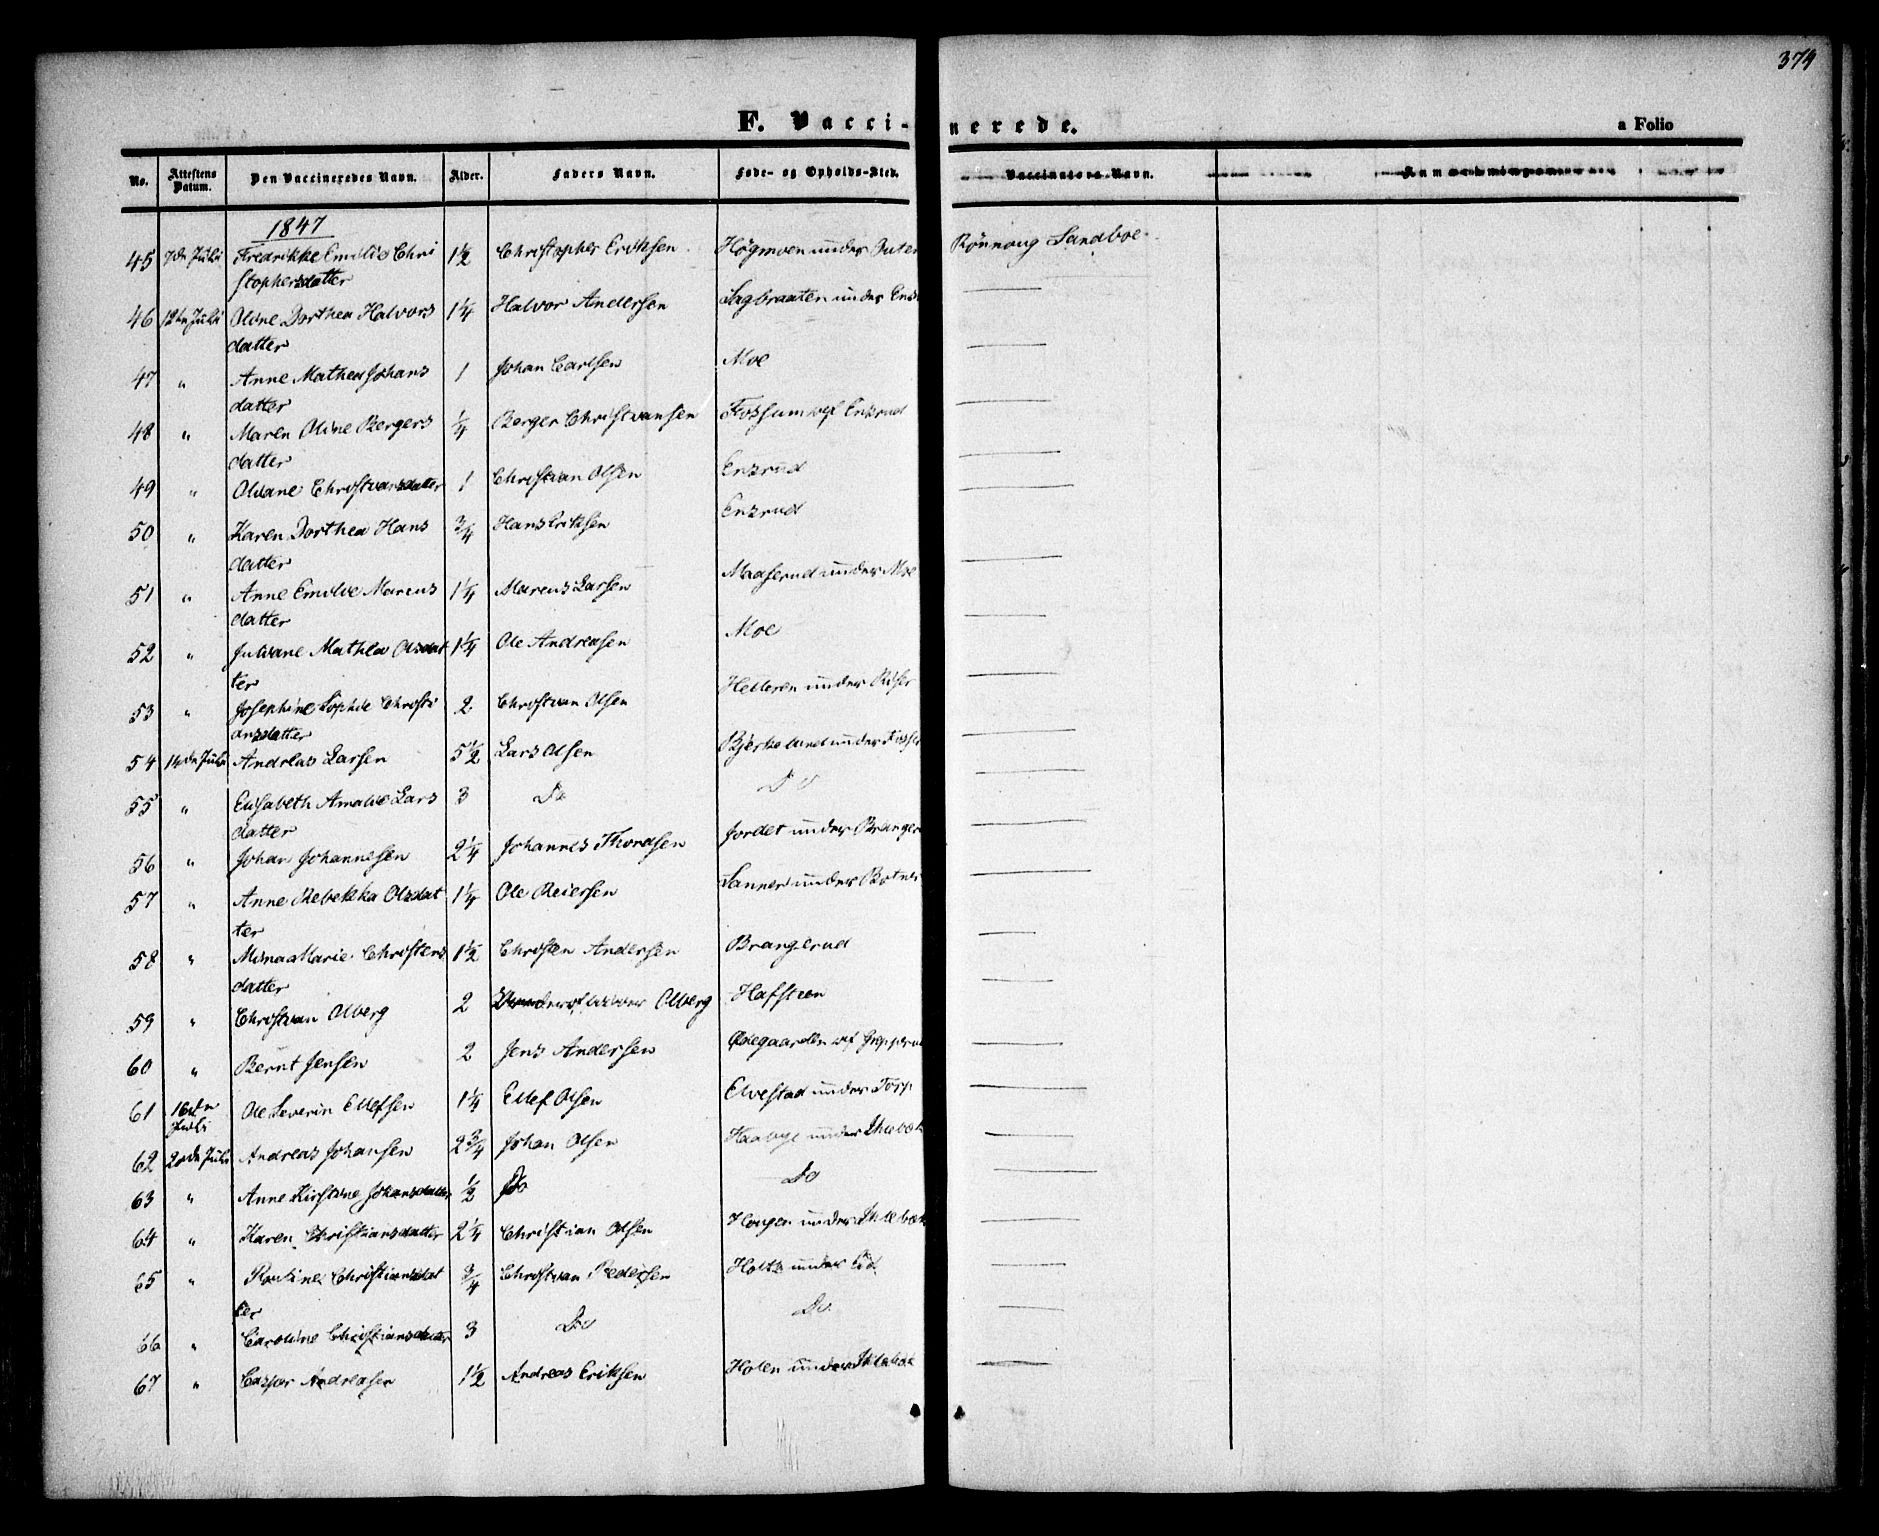 374
F. Vaccinerede.
a Folio
No. Attestens Datum. Den Vaccineredes Navn. Alder. Faders Navn. Føde- og Opholds-Sted. Vaccinators Navn. Anmærkninger
1847
45 7de Juli Fredrikke Emilie Chri 1½ Christopher Eriksen Högmoen under Buter Rönnoug Sandboe
stophersdatter
46 12te Juli Oline Dorthea Halvors 1¼ Halvor Andersen Sagbraaten under
datter
47 " Anne Mathea Johans 1 Johan Carlsen Moe
datter
48 " Maren Oline Bergers ¼ Berger Christiansen Fossum Enzrud
datter
49 " Oliane Christiansdatter 1 Christian Olsen Enzrud
50 " Karen Dorthea Hans ¾ Hans Eriksen Enzrud
datter
51 " Anne Emilie Marcus 1¼ Marcus Larsen Maaserud under Moe
datter
52 " Juliane Mathea Olsdat 1¼ Ole Andreasen Moe
ter
53 " Josephine Sophie Christi 2 Christian Olsen Helleren under Riser
ansdatter
54 14de Juli Andreas Larsen 5½ Lars Olsen Bjerkelund under
55 " Elisabeth Amalie Lars 3 Do Do
datter
56 " Johan Johannesen 2¼ Johannes Thordsen Jordet under Branger
57 " Anne Rebekka Olsdat 1¼ Ole Reiersen Sanner under Botner
ter
58 " Mina Marie Christens 1½ Christen Andersen Brangerud
datter
59 " Christian Olberg 2 Olberg Hafsteen
60 " Bernt Jensen 2 Jens Andersen Ødegaarden
61 16de Juli Ole Severin Ellefsen 1¼ Ellef Olsen Elvestad under Torp
62 20de Juli Andreas Johansen 2¾ Johan Olsen Haabye under Skiebæk
63 " Anne Kirstine Johansdatter ½ Do Do
64 " Karen Christiansdatter 2¼ Christian Olsen Hougen under Skiebæk
65 " Pauline Christiansdat ¾ Christian Pedersen Holtz under Eid
ter
66 " Caroline Christiansdatter 3 Do Do
67 " Casper Andreasen 1½ Andreas Eriksen Holen under Skiebæk